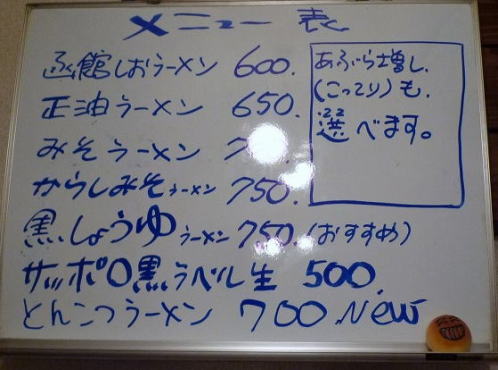 メニュー表
函館しおラーメン 600.
正油ラーメン 650.
みそラーメン
からしみそラーメン 750.
黒しょうゆラーメン 750.(おすすめ)
サッポロ黒ラベル生 500.
とんこつラーメン 700.New
あぶら増し.
(こってり)も.
選べます。